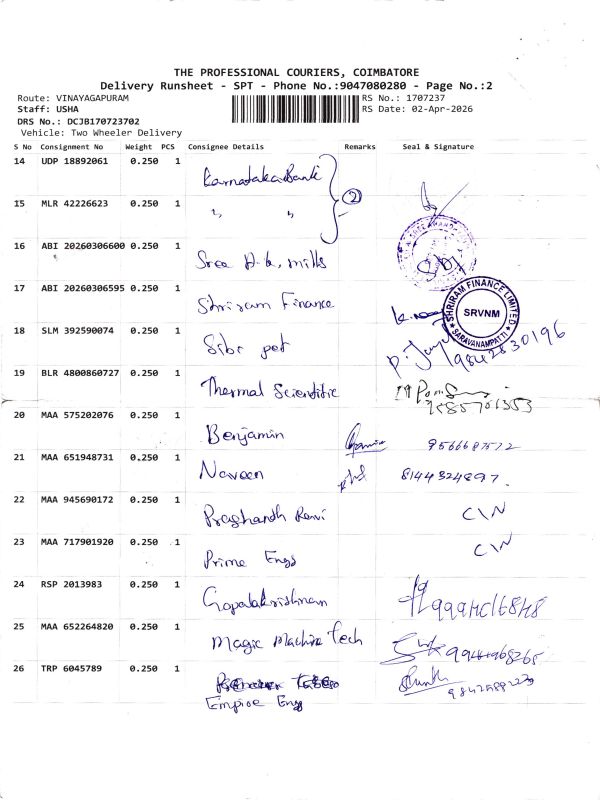 THE PROFESSIONAL COURIERS, COIMBATORE
Delivery Runsheet - SPT - Phone No.:9047080280 - Page No.:2
Route: VINAYAGAPURAM RS No.: 1707237
Staff: USHA RS Date: 02-Apr-2026
DRS No.: DCJB170723702
Vehicle: Two Wheeler Delivery
S No Consignment No Weight PCS Consignee Details Remarks Seal & Signature
14 UDP 18892061 0.250 1 Karnataka Bank
2
15 MLR 42226623 0.250 1 " "
16 ABI 20260306600 0.250 1 Sree mills
17 ABI 20260306595 0.250 1 Shriram Finance
SHRIRAM FINANCE LIMITED
SRVNM
SARAVANAMPATTI
18 SLM 392590074 0.250 1 Sibi pet 9842830196
19 BLR 4800860727 0.250 1 Thermal Scientific
20 MAA 575202076 0.250 1 Benjamin
21 MAA 651948731 0.250 1 Naveen 8144324897
22 MAA 945690172 0.250 1 Prashanth Ravi C\N
23 MAA 717901920 0.250 1 Prime Engs C\N
24 RSP 2013983 0.250 1 Gopalakrishnan
25 MAA 652264820 0.250 1 Magic Machine Tech
26 TRP 6045789 0.250 1
Empire Engg